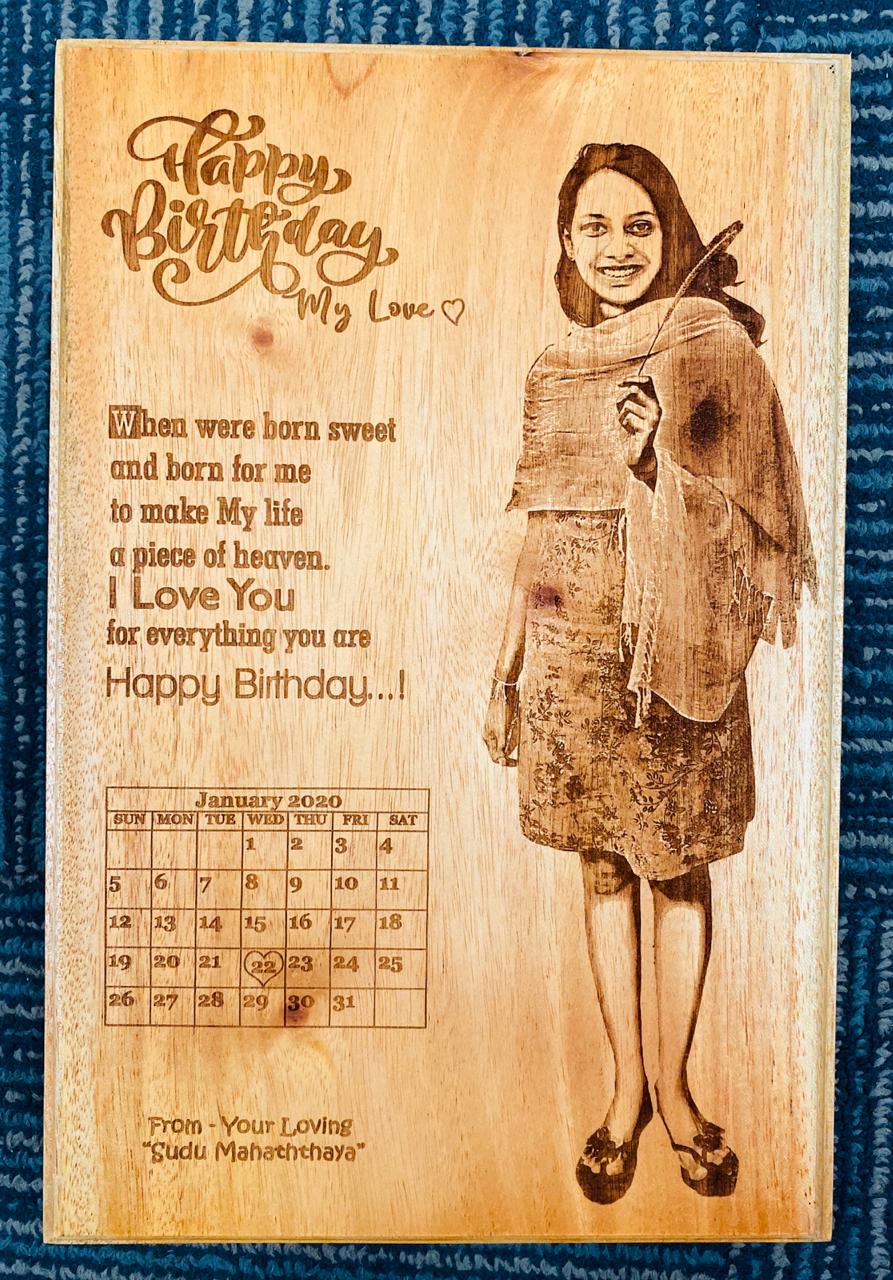 Happy
Birthday
My Love
When were born sweet
and born for me
to make My life
a piece of heaven.
I Love You
for everything you are
Happy Birthday...!
January 2020
SUN MON TUE WED THU FRI SAT
1 2 3 4
5 6 7 8 9 10 11
12 13 14 15 16 17 18
19 20 21 22 23 24 25
26 27 28 29 30 31
From - Your Loving
"Sudu Mahaththaya"